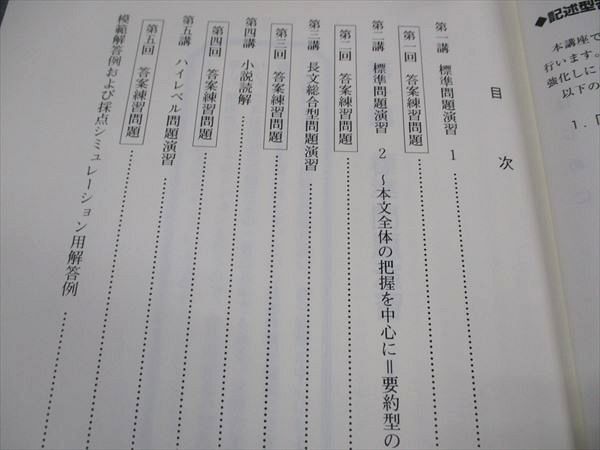 ◆記述型
本講座で
行います。
強化しに
以下の
1.
目次
第一講 標準問題演習 1
第一回 答案練習問題
第二講 標準問題演習 2 ~本文全体の把握を中心に＝要約型の
第二回 答案練習問題
第三講 長文総合型問題演習
第三回 答案練習問題
第四講 小説読解
第四回 答案練習問題
第五講 ハイレベル問題演習
第五回 答案練習問題
模範解答例および採点シミュレーション用解答例